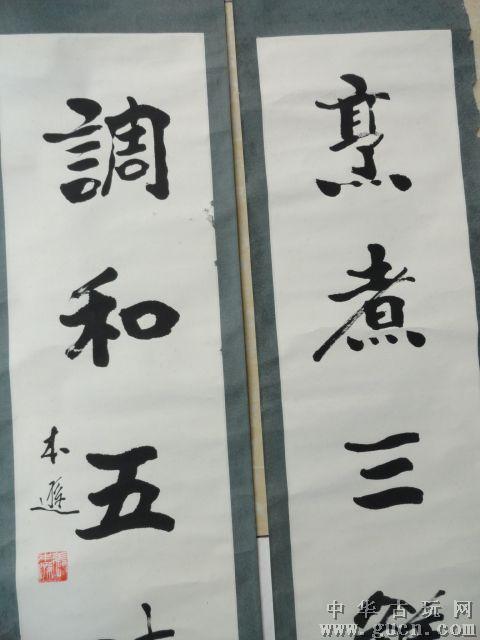 烹煮三
調和五
本遜
中华古玩网
www.gucn.com